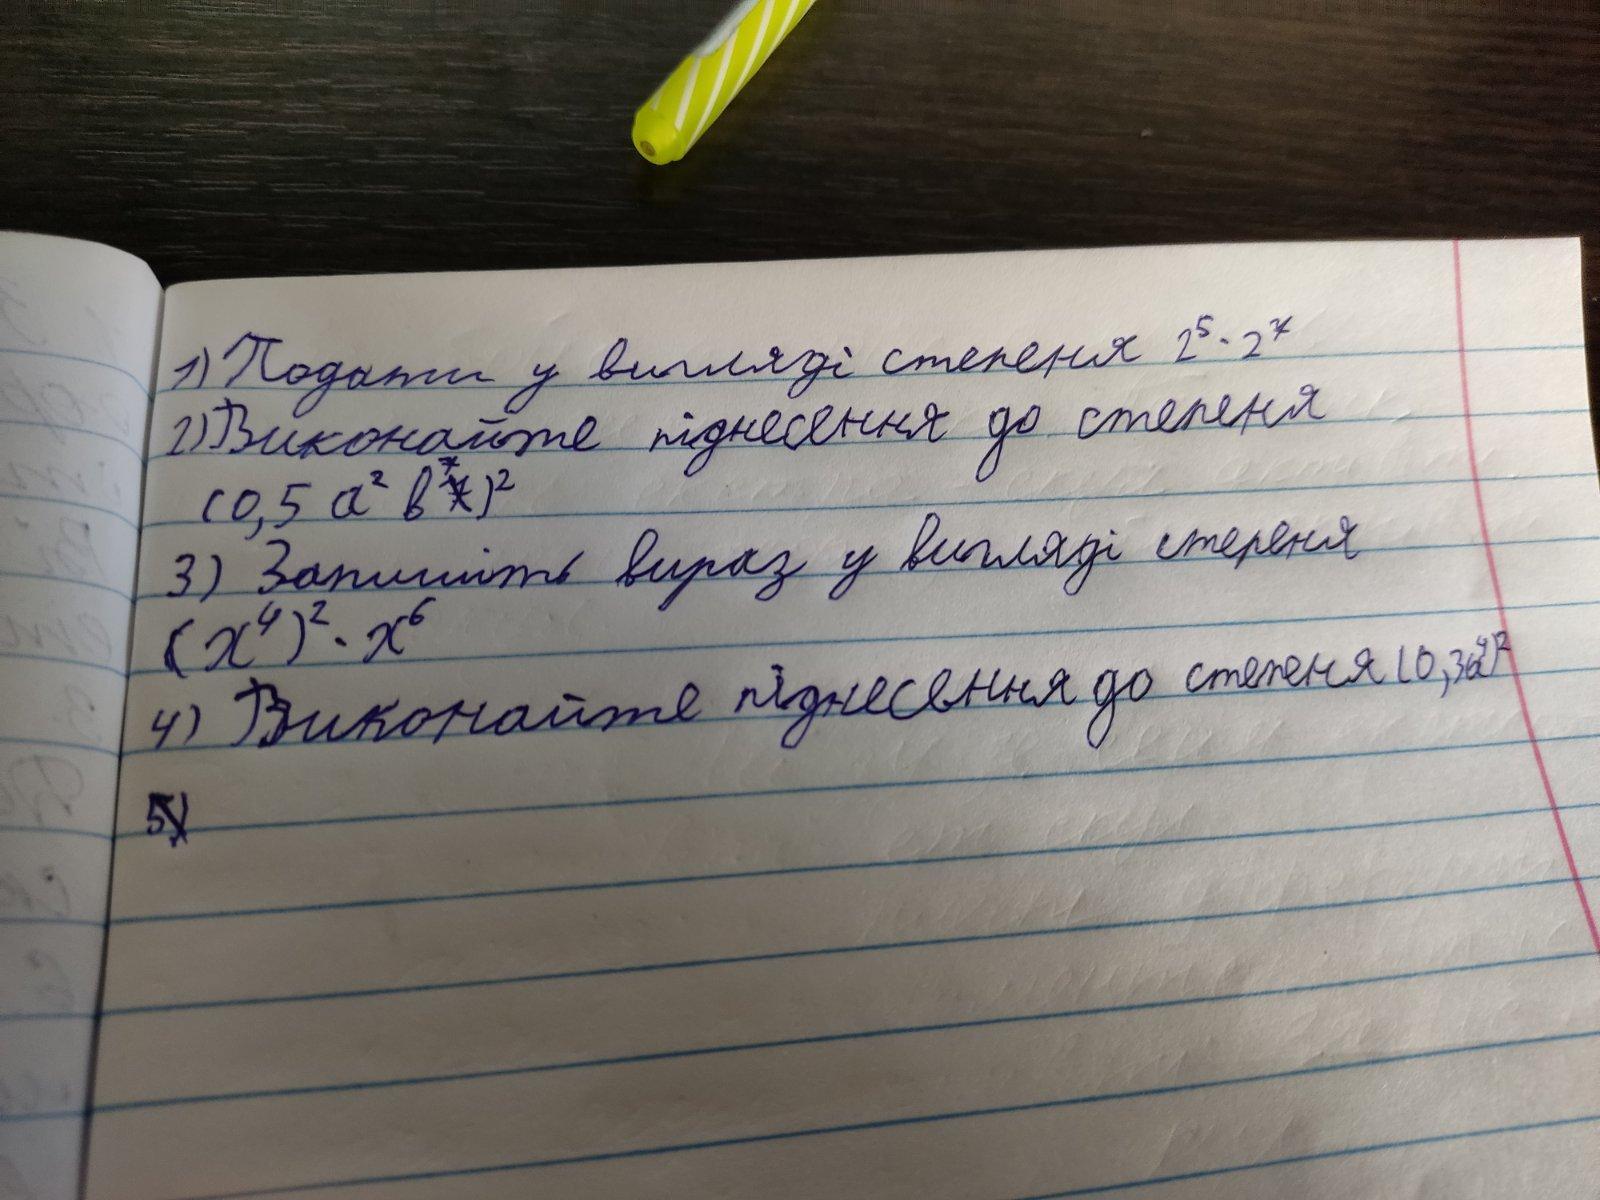 1) Подати у вигляді степеня 2⁵ · 2⁷
2) Виконайте піднесення до степеня
(0,5 a² b⁷)²
3) Запишіть вираз у вигляді степеня
(x⁴)² · x⁶
4) Виконайте піднесення до степеня (0,3a⁴)²
5)